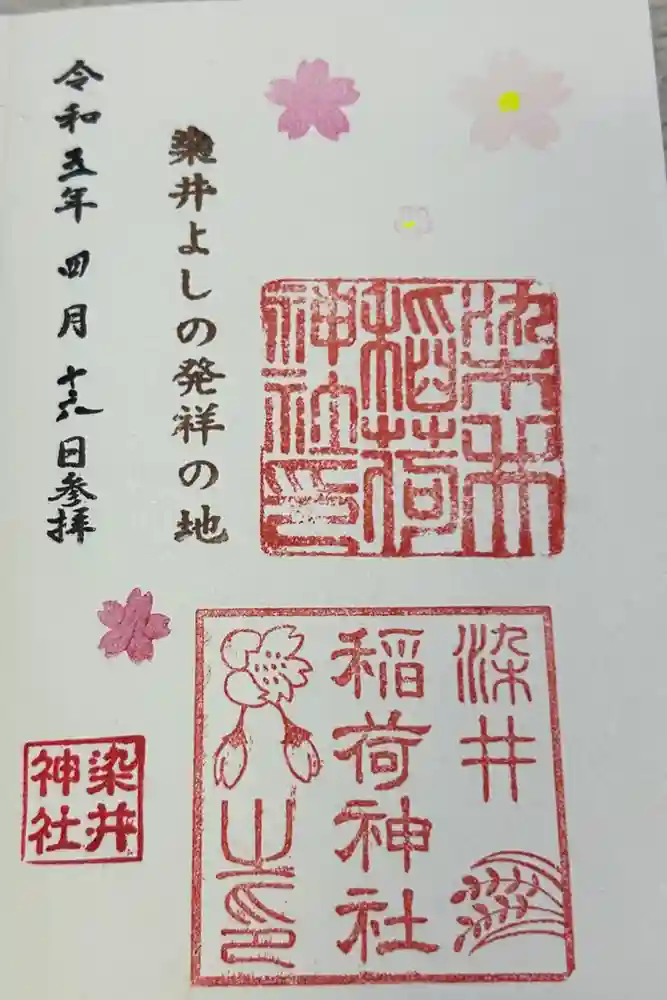 染井
稲荷
神社印
染井
稲荷神社
之印
染井よしの発祥の地
令和五年 四月 十六日参拝
染井
神社